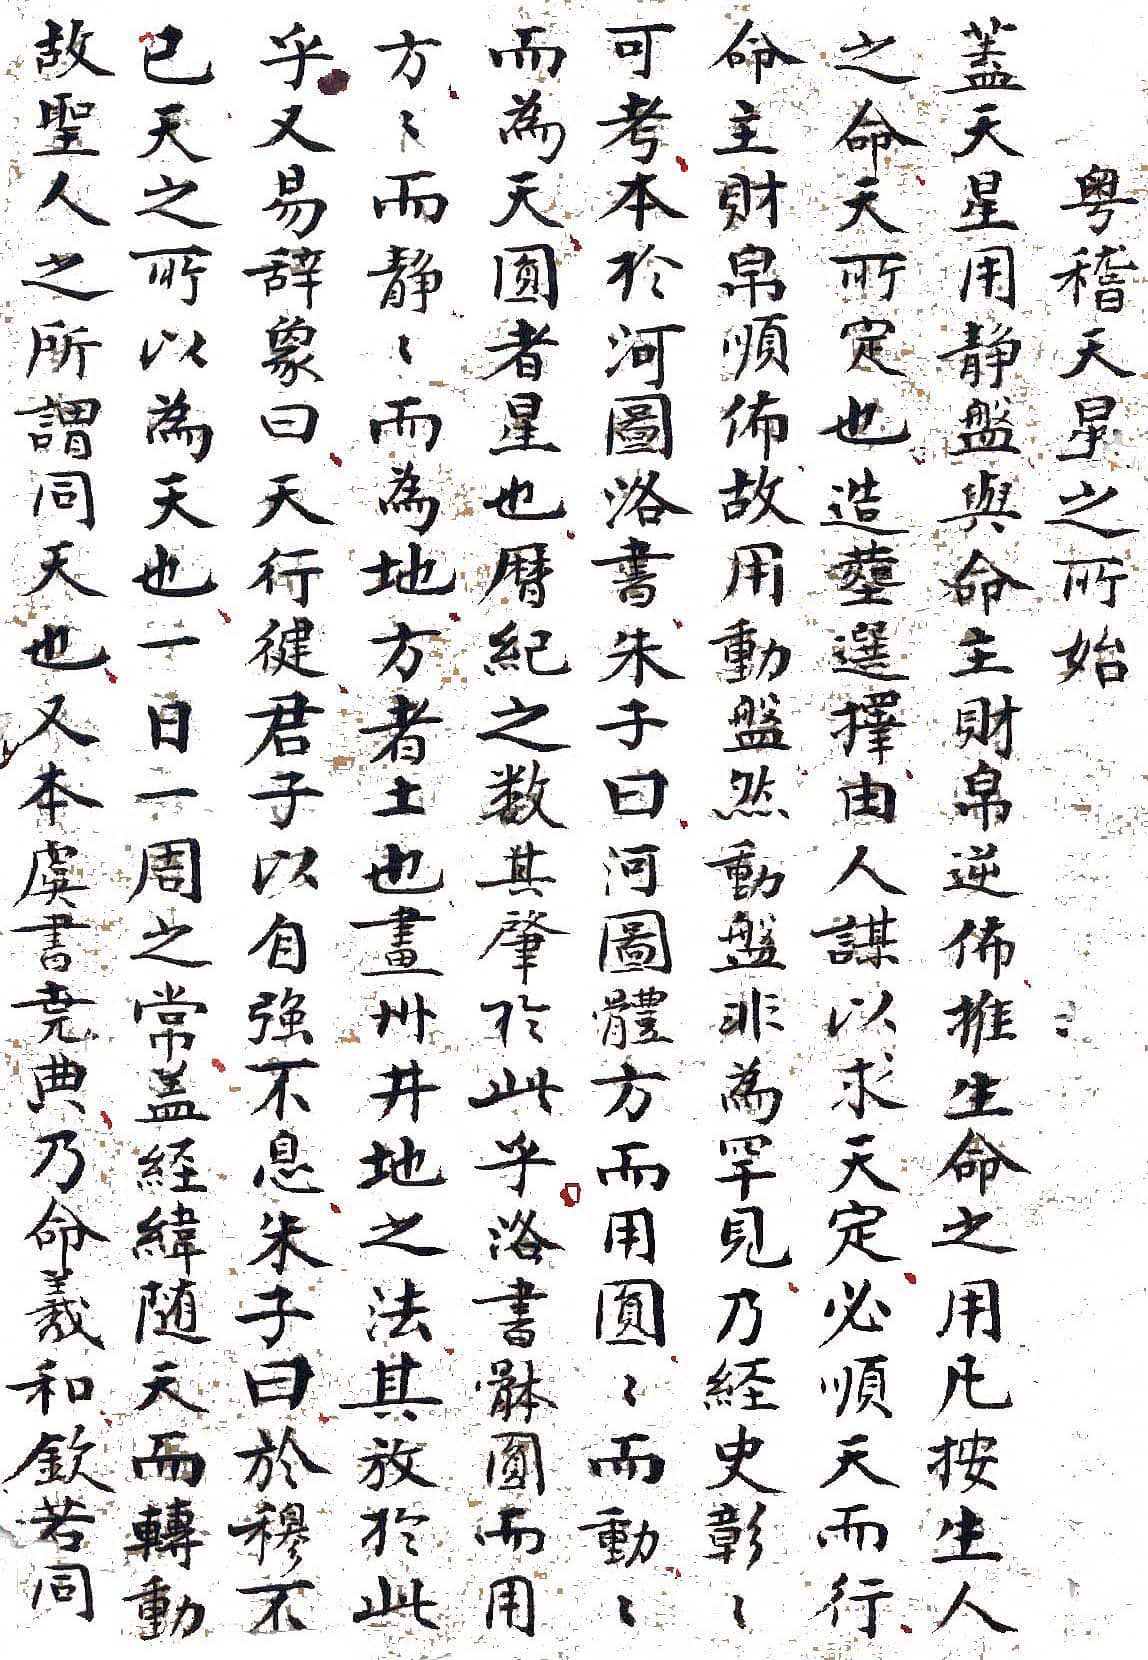 粵稽天星之所始
蓋天星用静盤與命主財帛逆佈推生命之用凡按生人
之命天所定也造塟選擇由人謀以求天定必順天而行
命主財帛順佈故用動盤然動盤非為罕見乃経史彰〻
可考本於河圖洛書朱子曰河圖體方而用圓〻而動〻
而為天圓者星也曆紀之数其肇於此乎洛書骵圓而用
方〻而静〻而為地方者土也畫州井地之法其放於此
乎又易辞象曰天行健君子以自強不息朱子曰於穆不
已天之所以為天也一日一周之常盖経緯随天而轉動
故聖人之所謂同天也又本虞書尭典乃命羲和欽若同